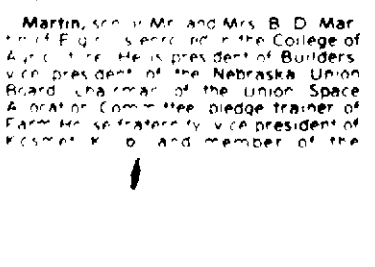 Martin, son of Mr. and Mrs. B. D. Mar-
tin of is enrolled in the College of
Agriculture. He is president of Builders,
vice president of the Nebraska Union
Board, chairman of the Union Space
Allocation Committee, pledge trainer of
Farm House fraternity, vice president of
Kosmet Klub and member of the